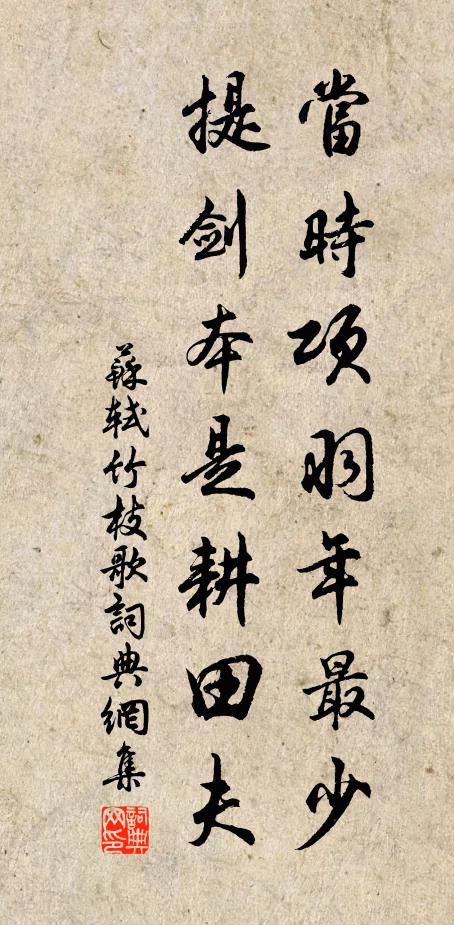 當時項羽年最少
提剑本是耕田夫
蘇軾竹枝歌詞典網集
詞典网印